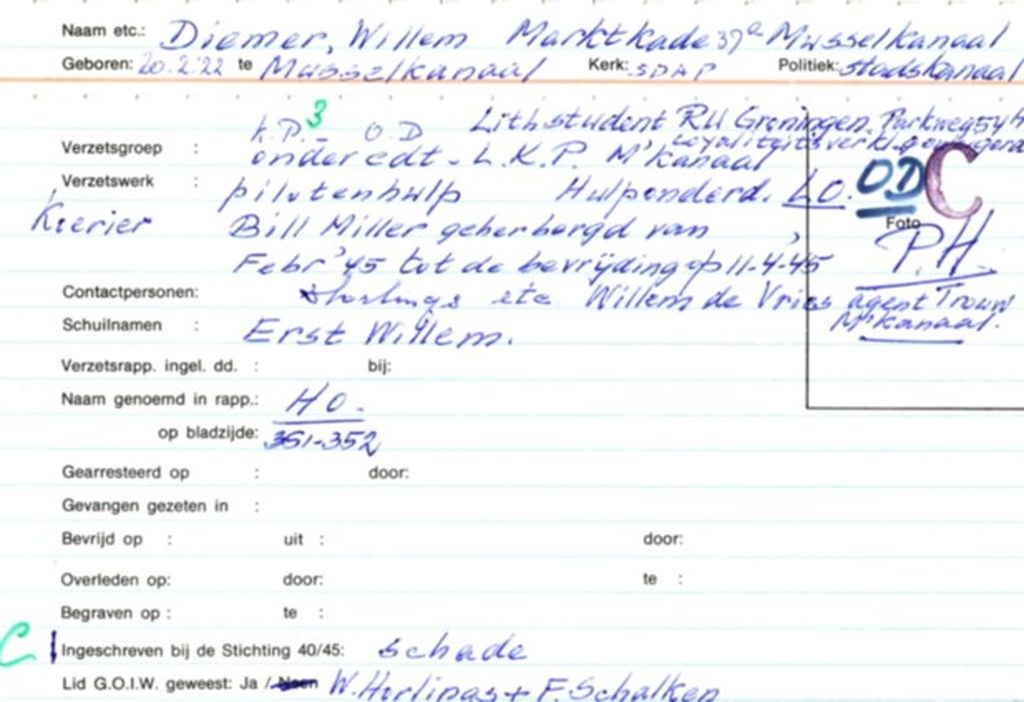 Naam etc.: Diemer, Willem Marktkade 37a Musselkanaal
Geboren: 20.2.22 te Musselkanaal Kerk: SDAP Politiek: Stadskanaal
K.P. 3 - O.D Lith student RU Groningen. Parkweg 54
Loyaliteitsverkl. geweigerd
Verzetsgroep : ondercdt - L.K.P. M'kanaal
Verzetswerk : pilotenhulp Hulponderd. LO. OD C
Koerier Bill Miller geherbergd van Foto
P.H.
Febr '45 tot de bevrijding op 11-4-'45
Contactpersonen: etc Willem de Vries agent Trouw
M'kanaal.
Schuilnamen : Erst Willem.
Verzetsrapp. ingel. dd. : bij:
Naam genoemd in rapp.: HO.
op bladzijde: 351-352
Gearresteerd op : door:
Gevangen gezeten in :
Bevrijd op : uit : door:
Overleden op: door: te :
Begraven op : te :
C Ingeschreven bij de Stichting 40/45: schade
Lid G.O.I.W. geweest: Ja / Neen W. Horlings + F. Schalken